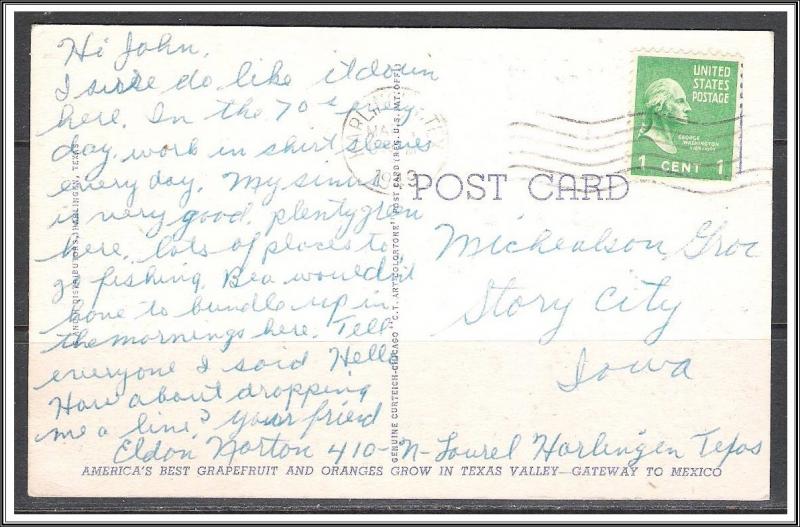 Hi John,
I sure do like it down
here. In the 70's every
day, work in shirt sleeves
every day. My sinus
is very good, plenty green
here, lots of places to
go fishing. Bea wouldn't
have to bundle up in
the mornings here. Tell
everyone I said Hello
How about dropping
me a line? your friend
Eldon Norton 410-N-Laurel Harlingen Texas
AMERICA'S BEST GRAPEFRUIT AND ORANGES GROW IN TEXAS VALLEY—GATEWAY TO MEXICO
DISTRIBUTORS, HARLINGEN, TEXAS
GENUINE CURTEICH-CHICAGO "C.T. ART-COLORTONE" POST CARD (REG. U.S. PAT. OFF.)
HARLINGEN TEX
1949
POST CARD
UNITED
STATES
POSTAGE
GEORGE
WASHINGTON
1789-1797
1 CENT 1
Michealson, Groc
Story City
Iowa